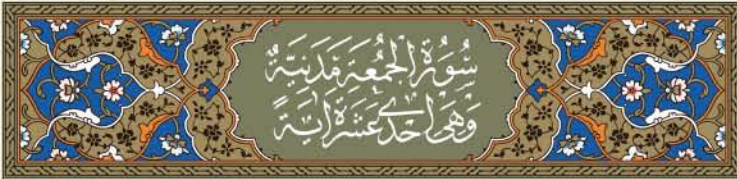 سُورَةُ الْجُمُعَةِ مَدَنِيَّةٌ
وَهِيَ اِحْدٰى عَشَرَةَ اٰيَةً